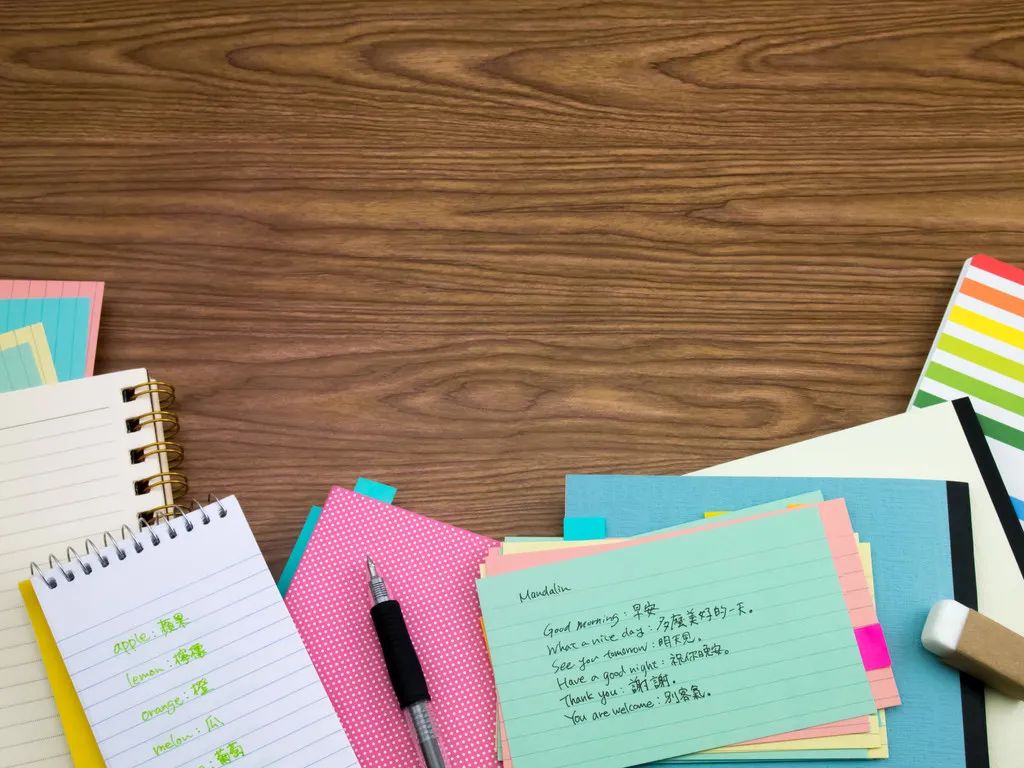 apple : 蘋果
lemon : 檸檬
orange : 橙
melon : 瓜
: 葡萄
Mandalin
Good morning : 早安
What a nice day : 多麼美好的一天。
See you tomorrow : 明天見。
Have a good night : 祝你晚安。
Thank you : 謝謝。
You are welcome : 別客氣。